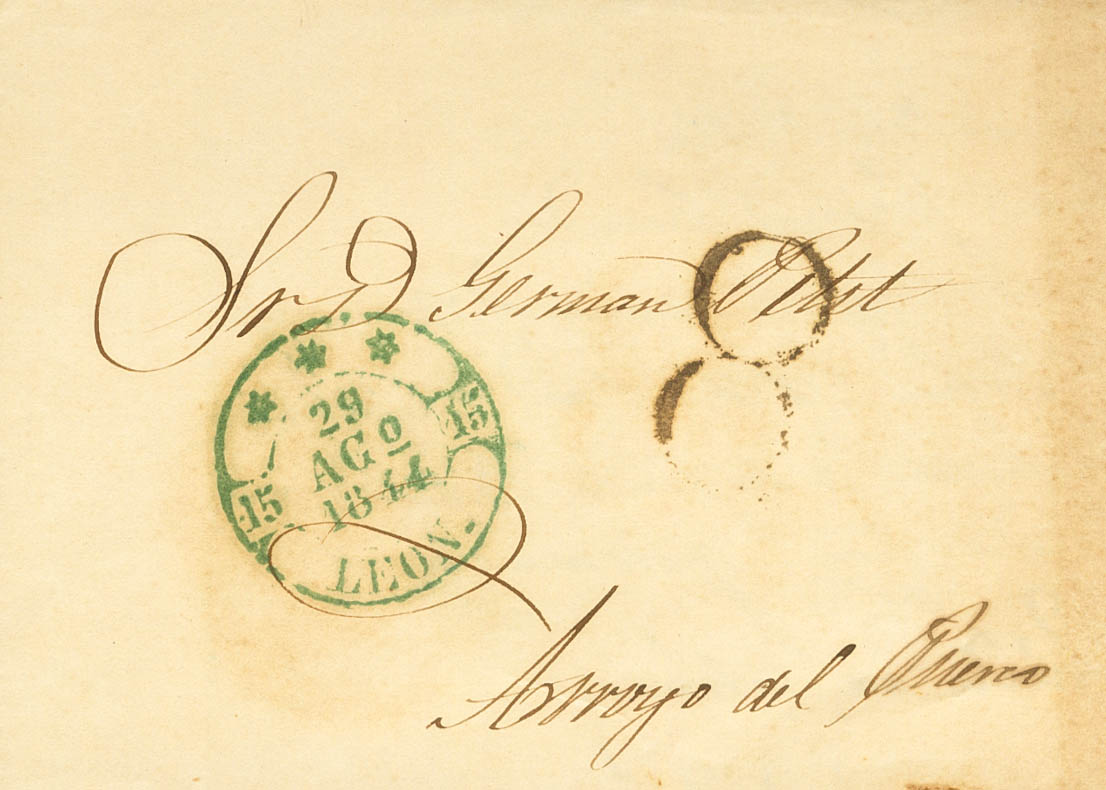 Sr D German Petit
8
15
29
AGO
1844
15
LEON.
Arroyo del Puerco